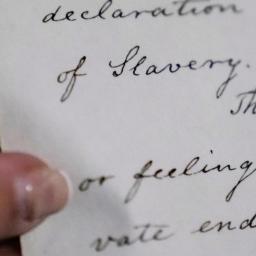 declaration
of Slavery.
Th
or feeling
vate end